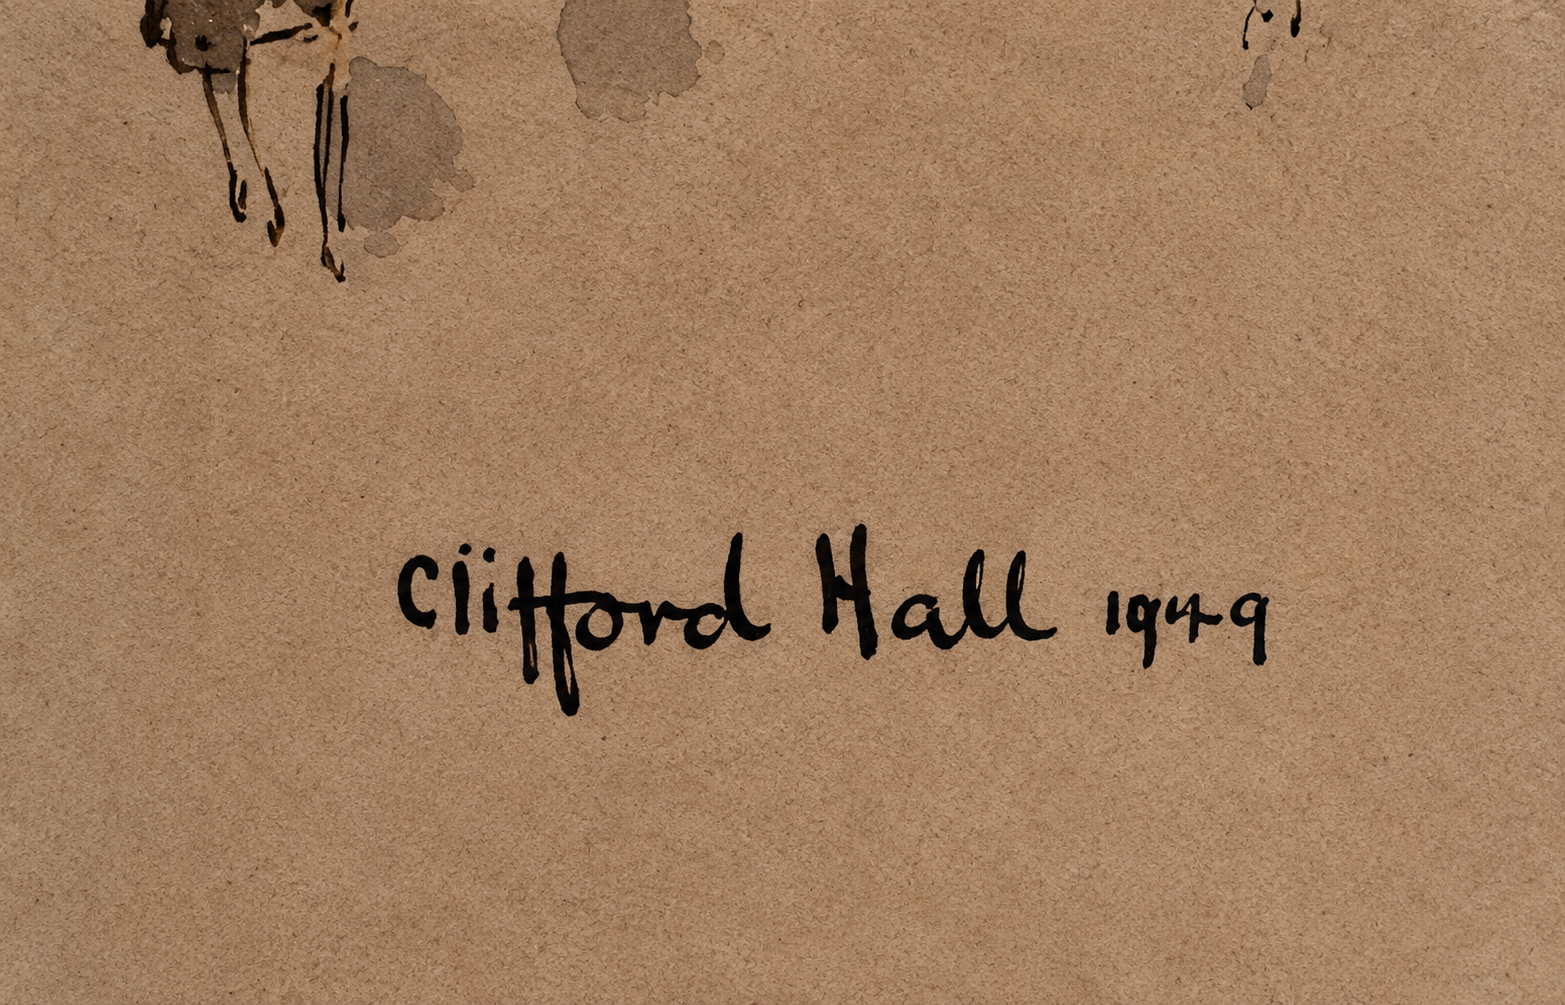 Clifford Hall 1949